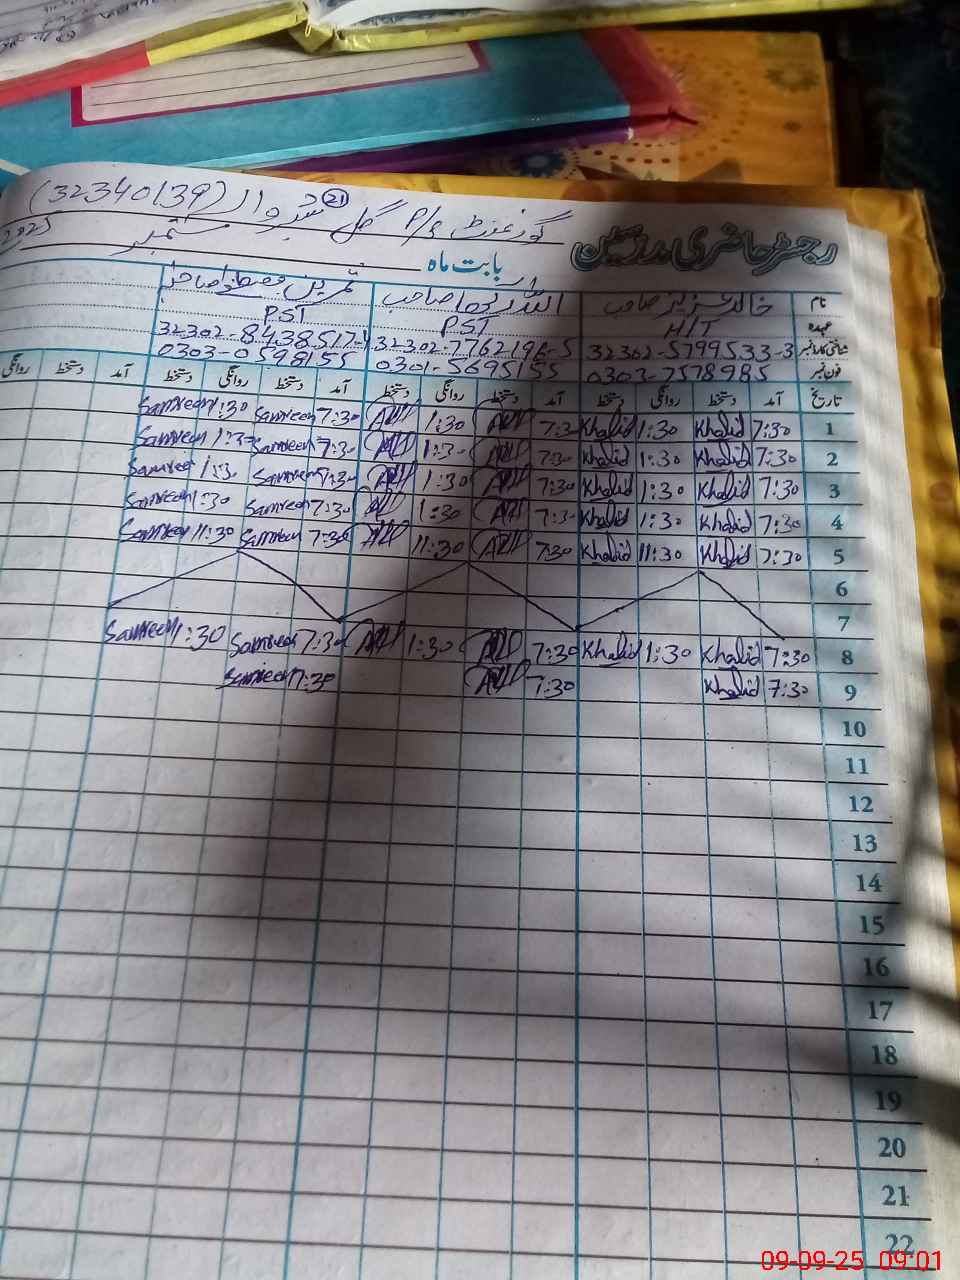 گورنمنٹ P/S گل شیر والا (32340139)
21
رجسٹر حاضری مدرسین
بابت ماہ ستمبر 2025
نام خالد عزیز صاحب صاحب ثمرین مصطفیٰ صاحبہ
عہدہ H/T PST PST
شناختی کارڈ نمبر 32302-5799533-3 32302-7762196-5 32302-8438517-4
فون نمبر 0303-7578985 0301-5695155 0303-0598155
تاریخ آمد دستخط روانگی دستخط آمد دستخط روانگی دستخط آمد دستخط روانگی دستخط آمد دستخط روانگی
1 7:30 Khalid 1:30 Khalid 7:30 1:30 7:30 Samreen 1:30 Samreen
2 7:30 Khalid 1:30 Khalid 7:30 1:30 7:30 Samreen 1:30 Samreen
3 7:30 Khalid 1:30 Khalid 7:30 1:30 7:30 Samreen 1:30 Samreen
4 7:30 Khalid 1:30 Khalid 7:30 1:30 7:30 Samreen 1:30 Samreen
5 7:30 Khalid 11:30 Khalid 7:30 11:30 7:30 Samreen 11:30 Samreen
6
7
8 7:30 Khalid 1:30 Khalid 7:30 1:30 7:30 Samreen 1:30 Samreen
9 7:30 Khalid 7:30 7:30 Samreen
10
11
12
13
14
15
16
17
18
19
20
21
22
09-09-25 09:01